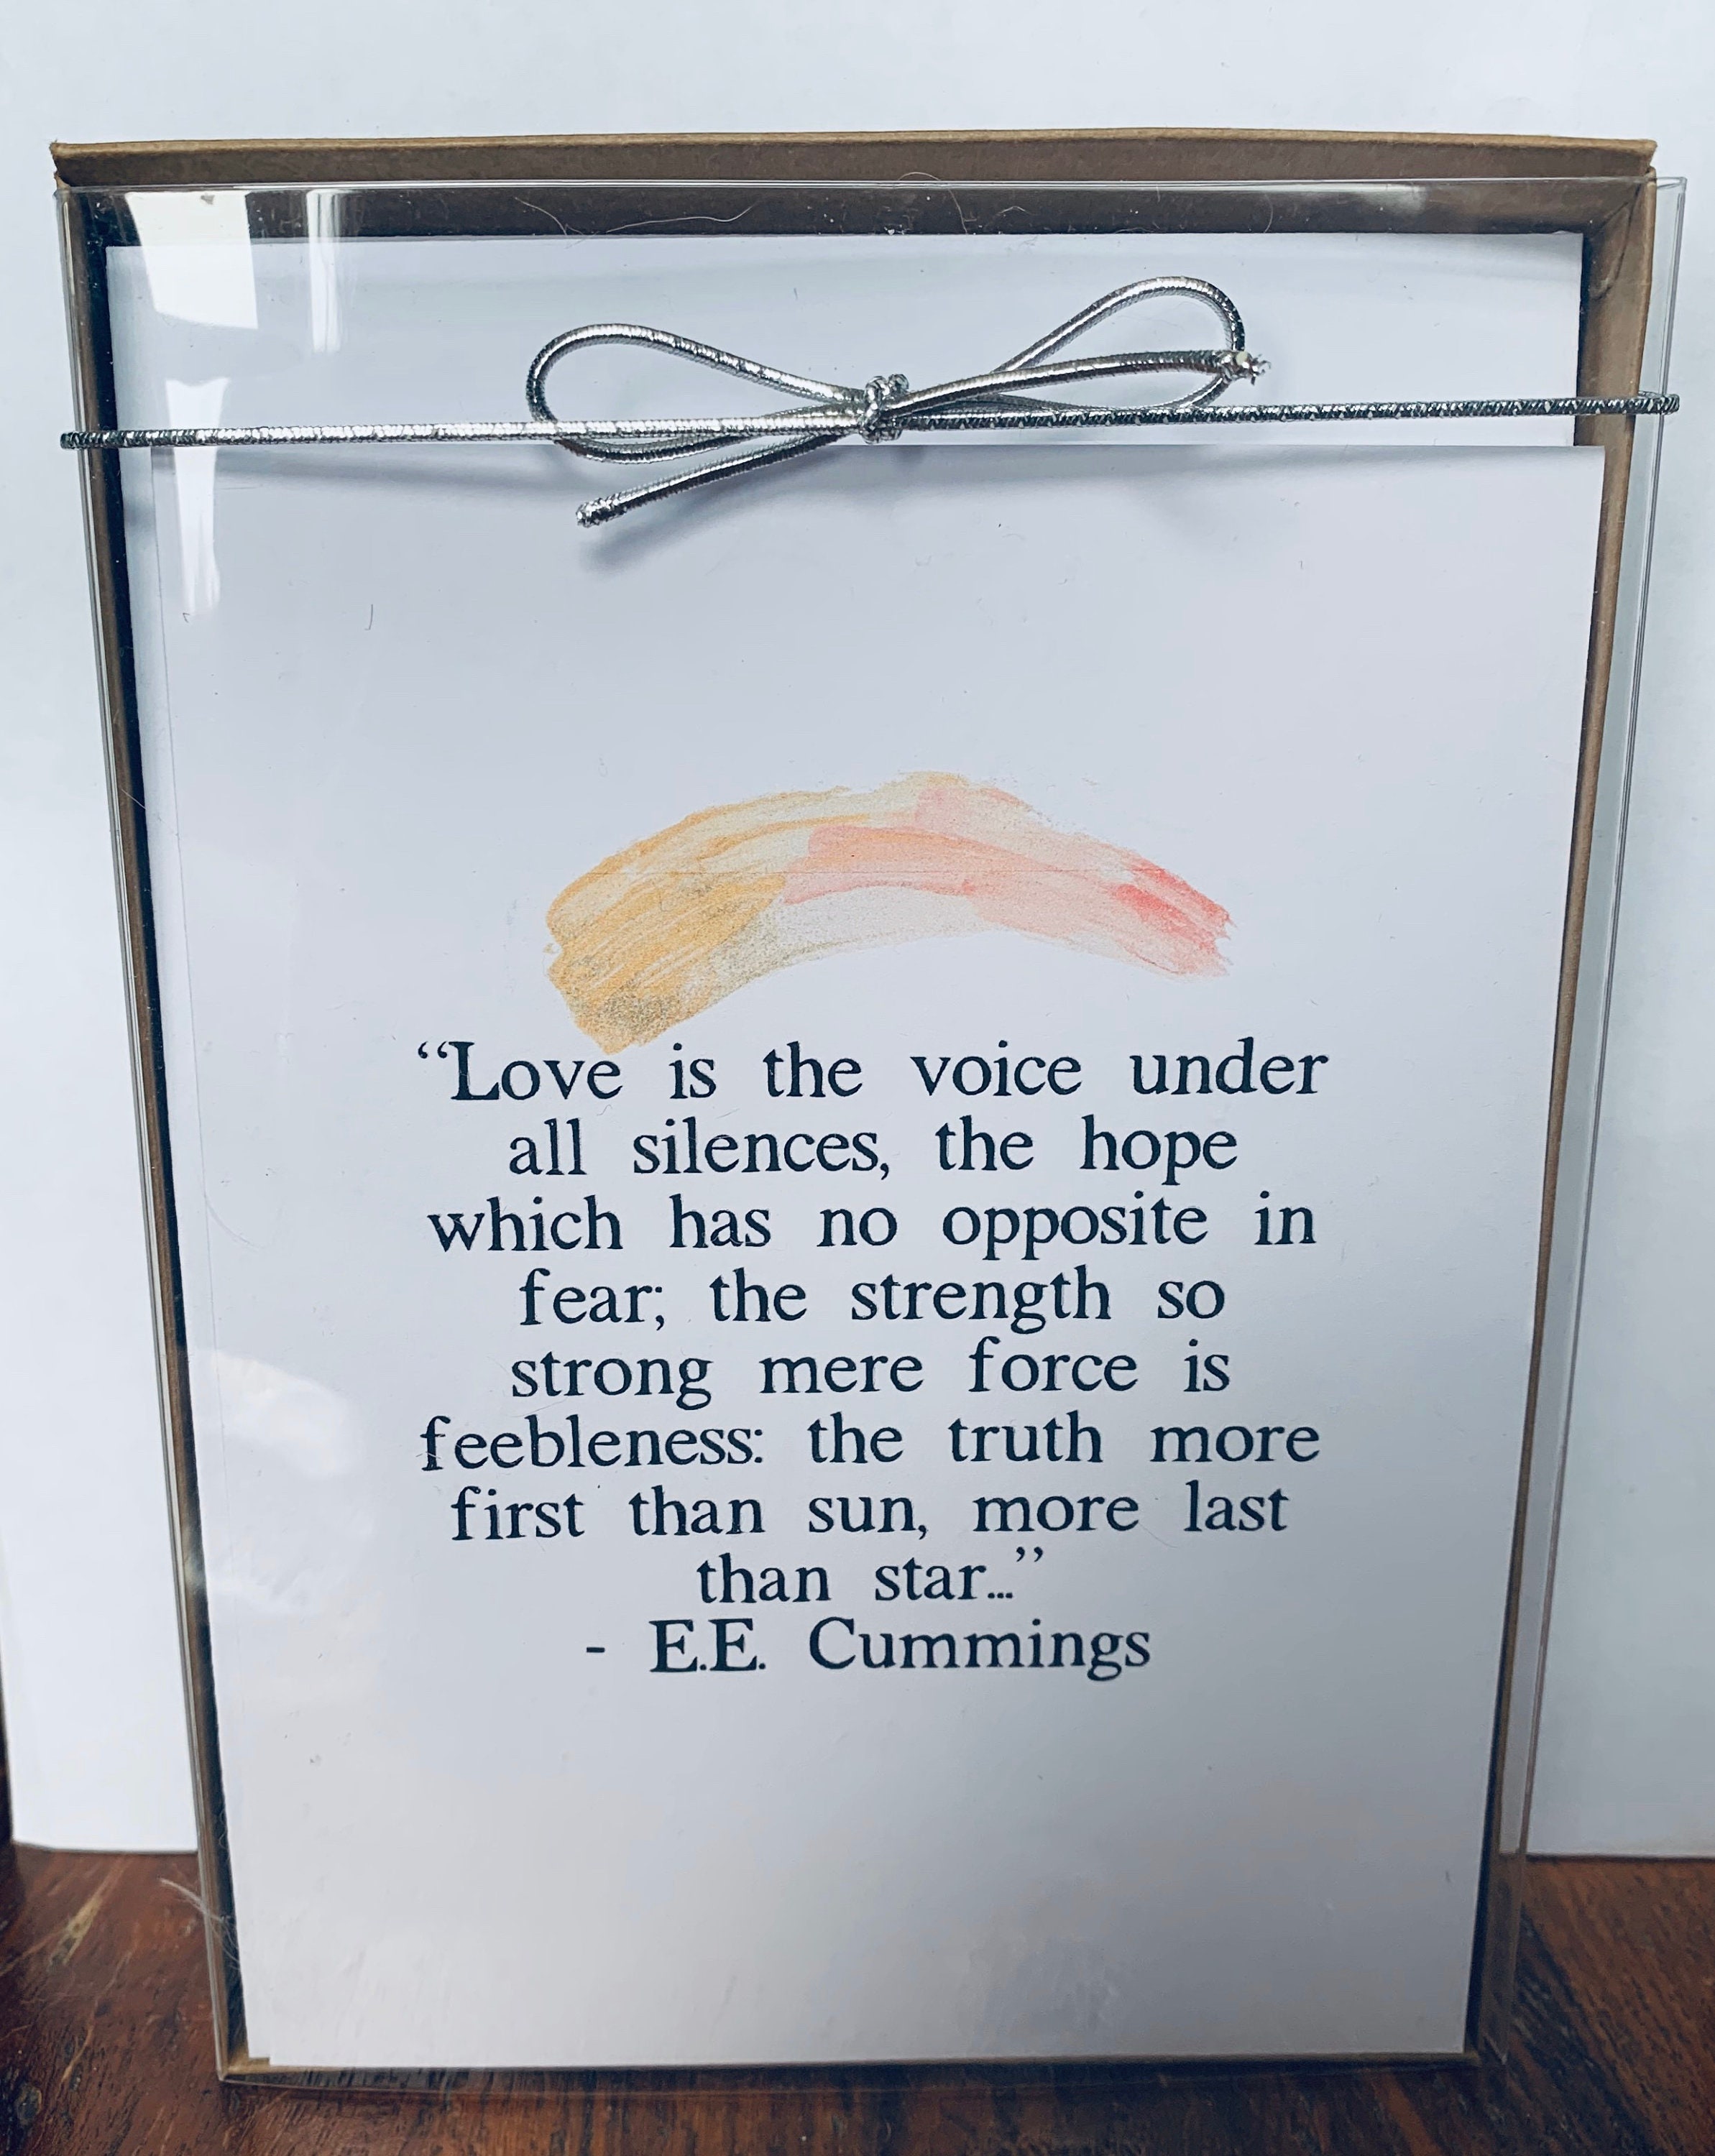 “Love is the voice under
all silences, the hope
which has no opposite in
fear; the strength so
strong mere force is
feebleness: the truth more
first than sun, more last
than star...”
- E.E. Cummings